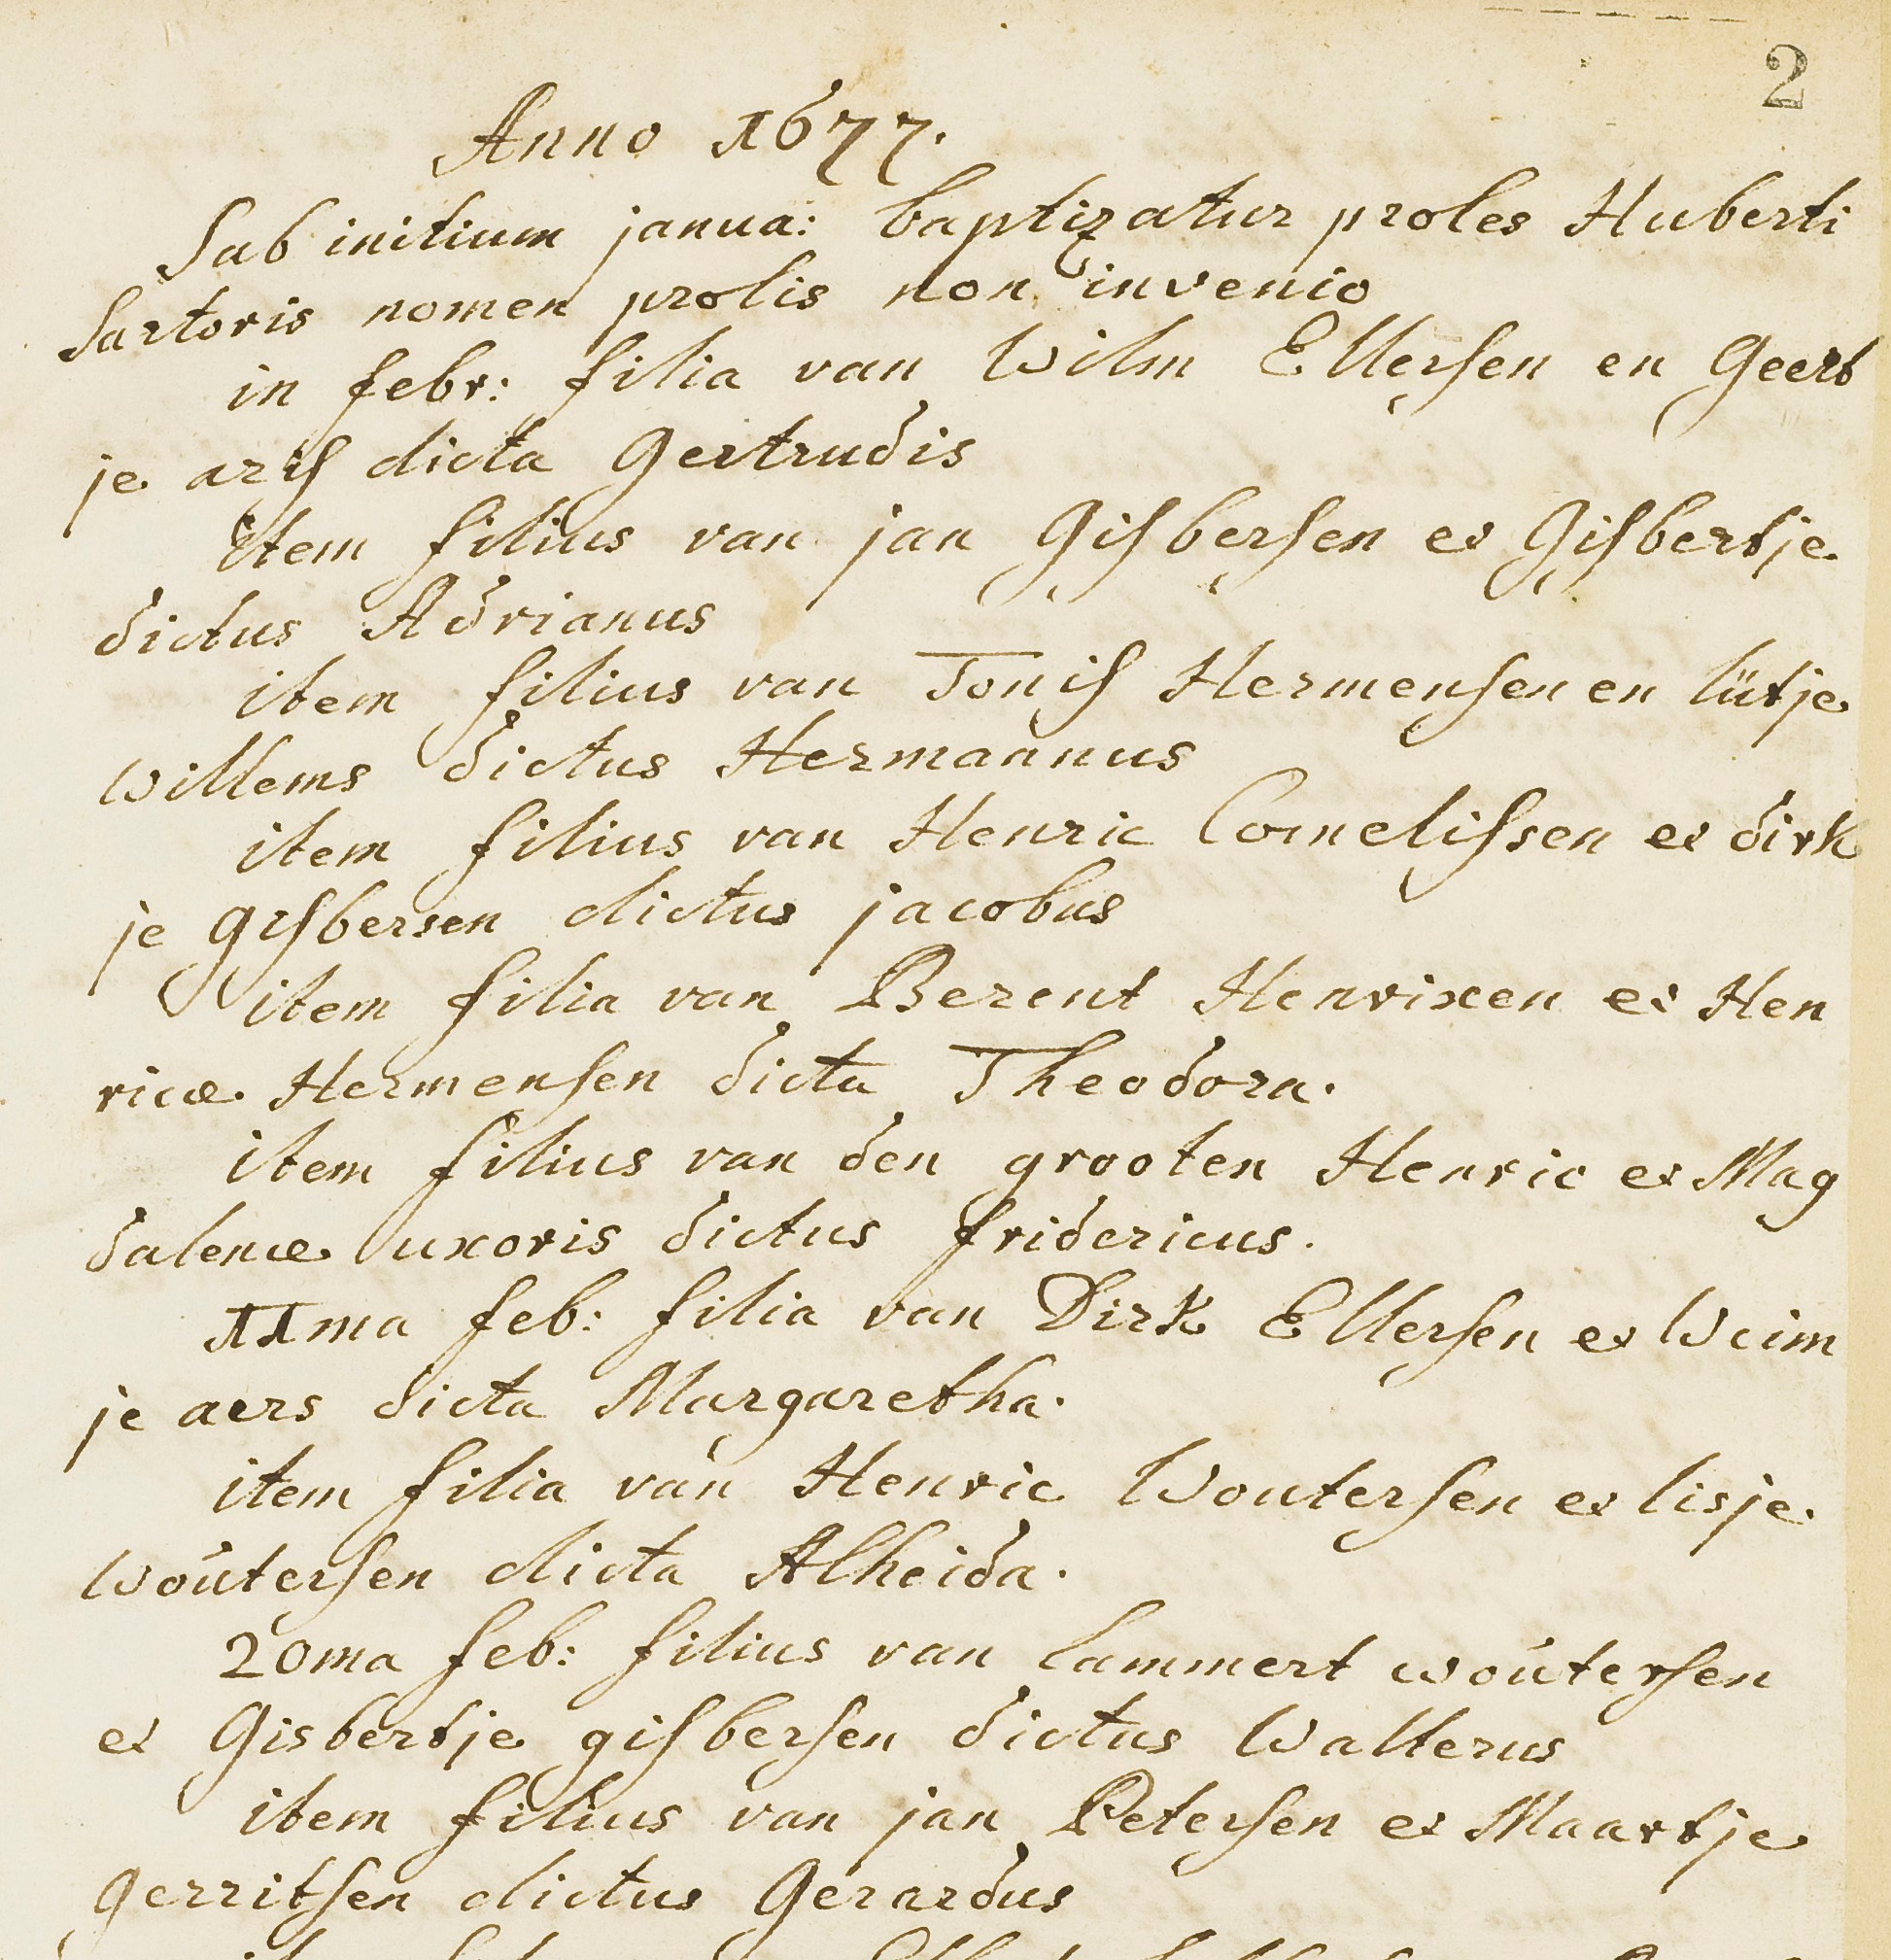 2
Anno 1677.
Sub initium janua: baptizatur proles Huberti
Sartoris nomen prolis non invenio
in febr: filia van Wilm Ellersen en Geert
je aris dicta Gertrudis
item filius van jan Gisbersen et Gisbertje
dictus Adrianus
item filius van Tonis Hermensen en lütje
willems dictus Hermannus
item filius van Henric Cornelissen et dirk
je gisbersen dictus jacobus
item filia van Berent Henrixen et Hen
ricæ Hermensen dicta Theodora.
item filius van den grooten Henric et Mag
dalenæ uxoris dictus fridericus.
11ma feb: filia van Dirk Ellersen et Weim
je aers dicta Margaretha.
item filia van Henric Woutersen et lisje
woutersen dicta Alheida.
20ma feb: filius van lammert woutersen
et Gisbertje gisbersen dictus Walterus
item filius van jan Petersen et Maartje
gerritsen dictus Gerardus